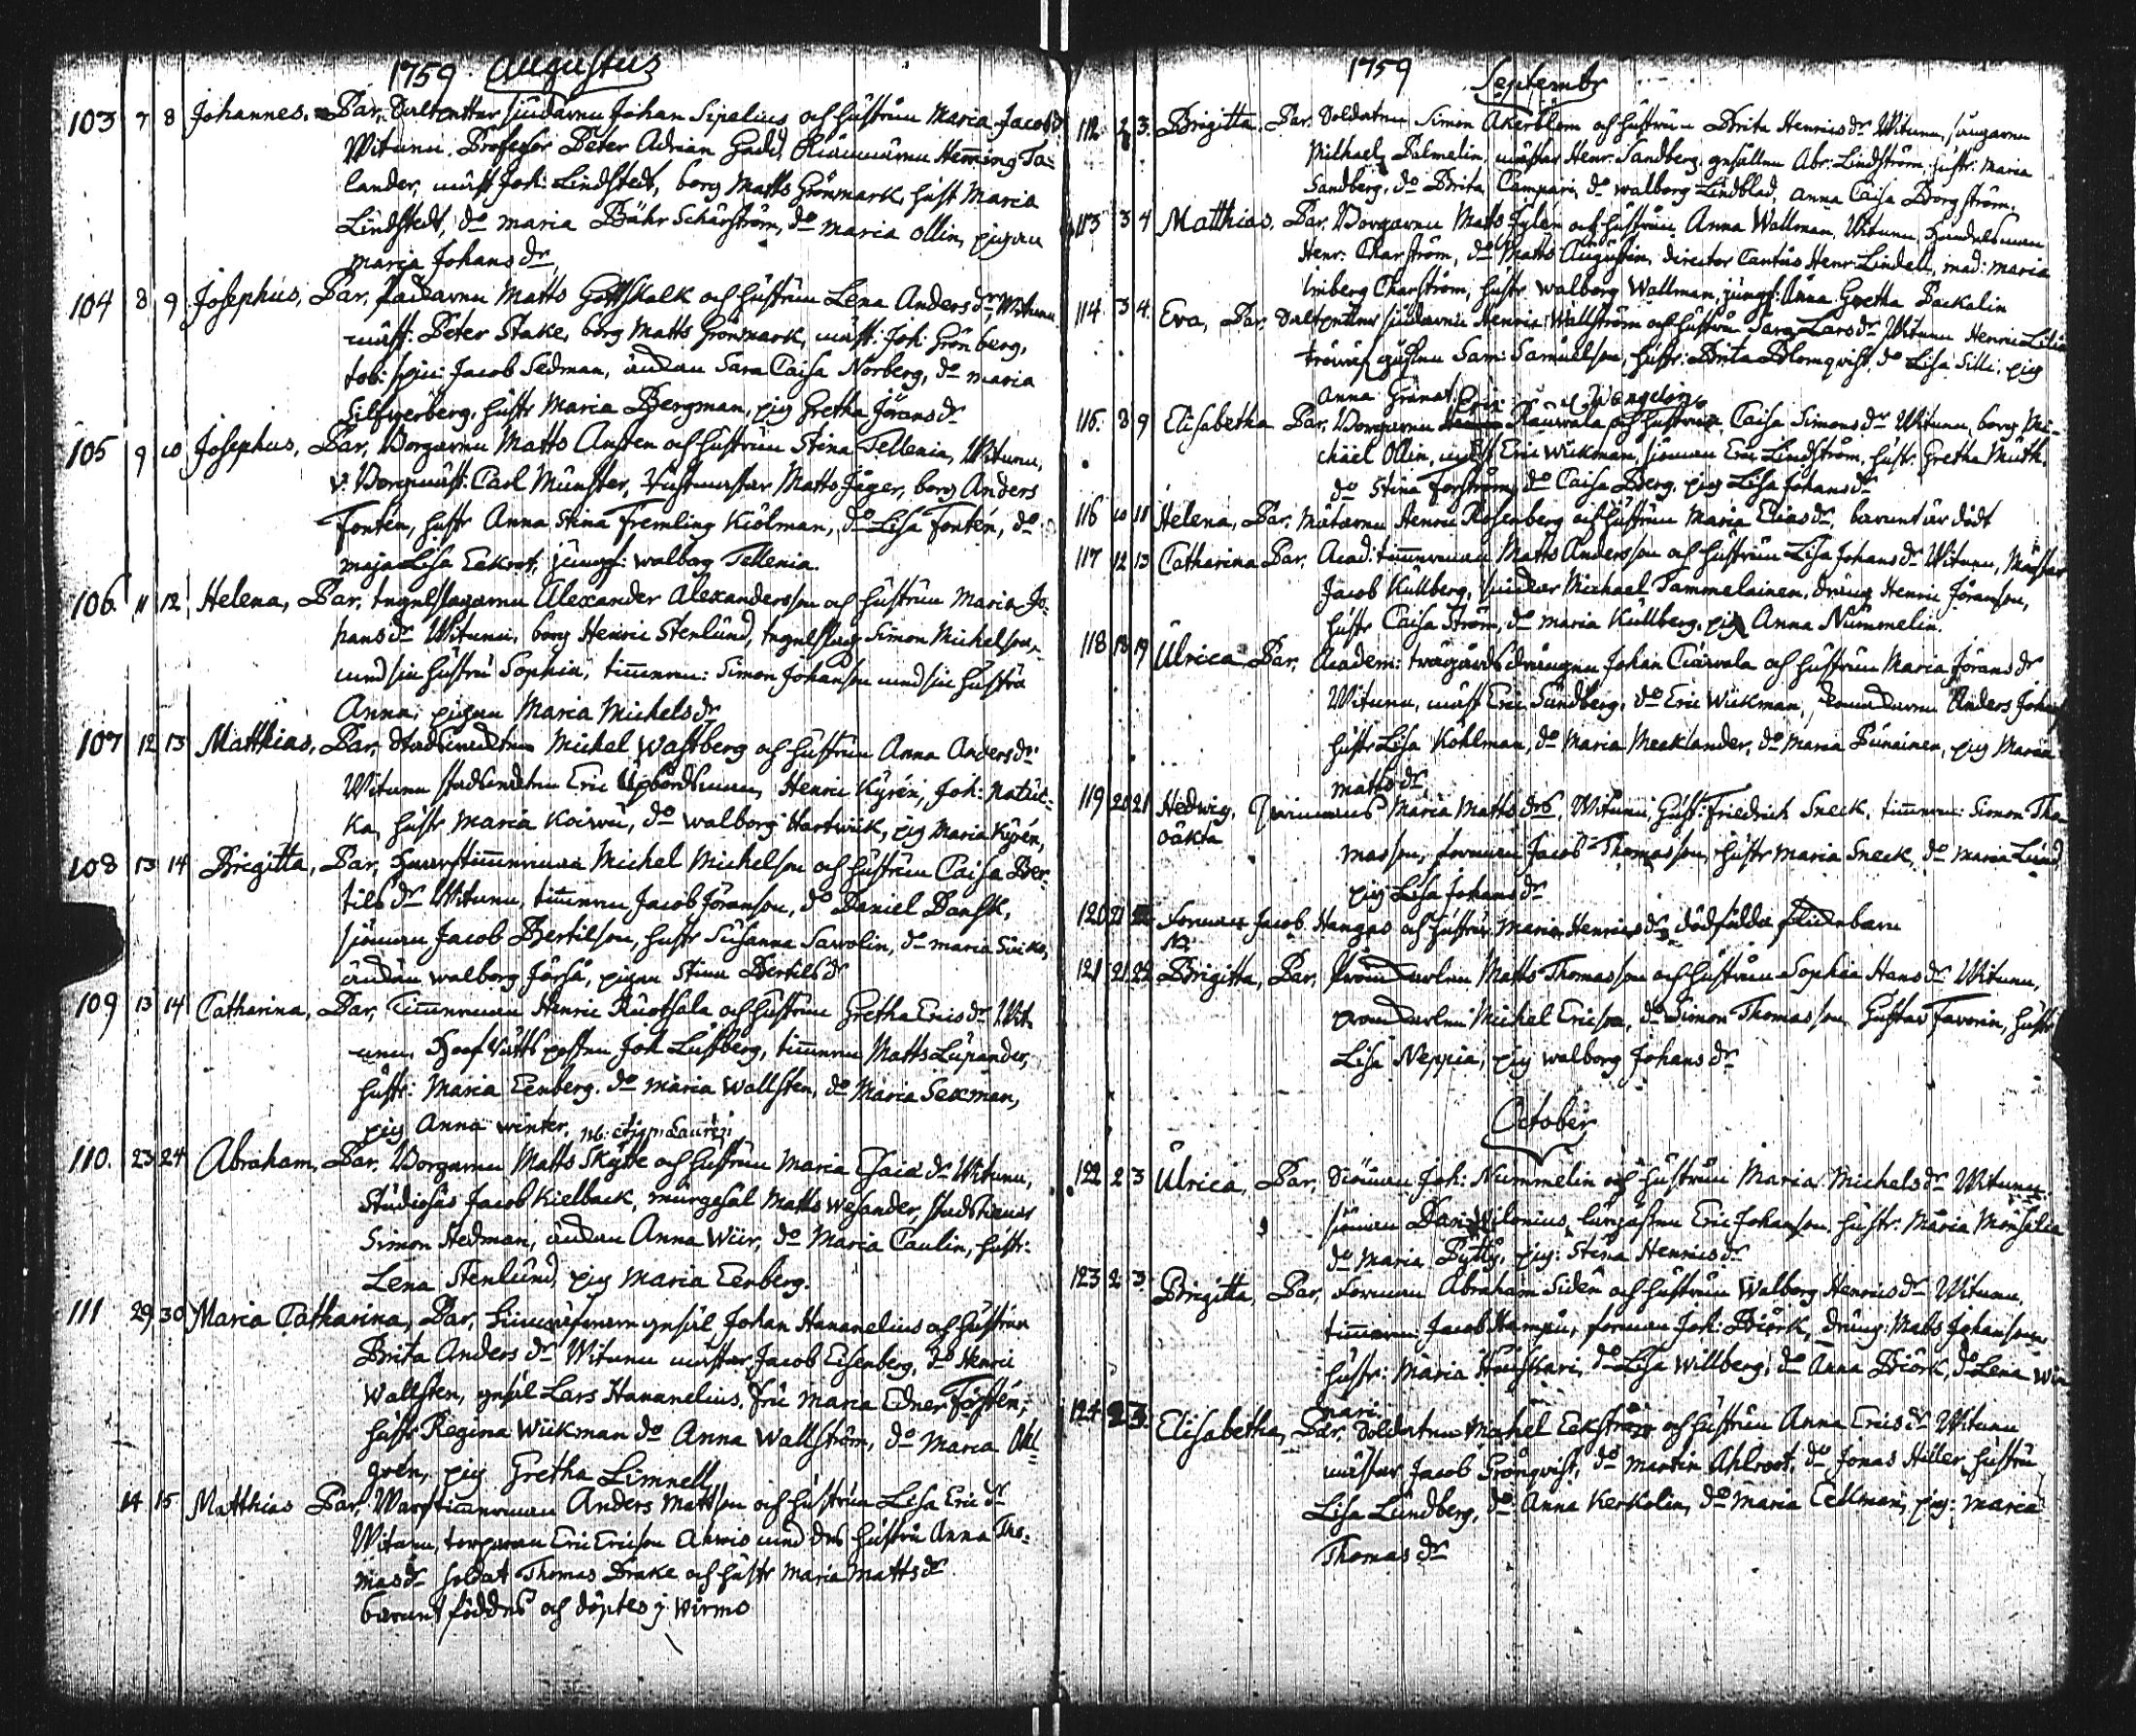 1759 Augustus
103 7 8 Johannes. Par. Saltpetter siudarnu Johan Sipelius och hustrun Maria Jacobs dr
Witunu. Professor Peter Adrian Gadd, Henning Ta-
lander, mäst Joh: Lindstedt, borg Matts Grönmark, hust Maria
Lindstedt, do maria Bähr Schärström, do maria ollin, pigan
maria Johans dr
104 8 9 Josephus, Par, Matts Gottskalk och hustrun Lena Anders dr, Witunu
mäst: Peter Stake, borg Matts Grönmark, mäst: Joh: Grönberg,
tob: spin: Jacob Sedman, änckan Sara Caisa Norberg, do maria
Silfwerberg, hustr Maria Bergman, pig Gretha Jörans dr
105 9 10 Josephus, Par, Borgarnu Matts Ansten och hustrun Stina Tellenia, Witunu,
v. Borgmäst: Carl Münster, Rustmästar Matts Jäger, borg Anders
Fontén, hustr Anna Stina Fremling Kiölman, do Lisa Fontén, do
maja Lisa Eekrot, jungf: walborg Tellenia.
106 11 12 Helena, Par, tegelslagarnu Alexander Alexandersson och hustrun Maria Jo-
hans dr Witunu, borg Henric Stenlund, tegelslag Simon Michelson,
med sin hustru Sophia, timmerm: Simon Johanson med sin hustru
Anna, pigan Maria Michels dr
107 12 13 Matthias, Par, Michel Wastberg och hustrun Anna Anders dr
Witunu Eric Upbördsman, Henric Kyrén, Joh: Natuc-
ka, hustr Maria Koiwu, do walborg Hartwiik, pig Maria Kyrén,
108 13 14 Brigitta, Par, timmerman Michel Michelson och hustrun Caisa Ber-
tils dr Witunu, timmerm Jacob Jöranson, do Daniel Dansk,
sjöman Jacob Bertilson, hustr Susanna Sawolin, do maria Siuko,
änckan walborg Jörså, pigan Stina Bertils dr
109 13 14 Catharina, Par, Timmerman Henric Ruotsala och hustrun Gretha Erics dr Wit-
unu, Joh Lusberg, timmerm Matts Lupander,
hustr: Maria Eenberg, do maria Wallsten, do Maria Sexman,
pig Anna winter.
110. 23 24 Abraham, Par, Borgarnu Matts Skytte och hustrun Maria Esaiæ dr Witunu,
Studiosus Jacob Kielback, murgesäl Matts Wesander, stadstienar
Simon Hedman, änckan Anna Wiir, do Maria Caulin, hustr:
Lena Stenlund, pig Maria Eenberg.
111 29 30 Maria Catharina, Par, gesäl Johan Hananelius och hustrun
Brita Anders dr Witunu mästar Jacob Eisenberg, do Henric
Wallsten, gesäl Lars Hananelius, fru maria Edner Forstén,
hustr Regina Wiikman do Anna Wallström, do Maria Ahl-
gren, pig Gretha Limnell
14 15 Matthias Par, Warfstimmerman Anders Mattson och hustrun Lisa Eric dr
Witunu, torparen Eric Ericson Ahwio med des hustru Anna Tho-
mas dr soldat Thomas Drake och hustr Maria Matts dr
barnet föddes och döptes j wirmo
1759 Septembr
112 2 3. Brigitta, Par. Soldatnu Simon Åkerblom och hustrun Brita Henrics dr Witunu,
Michael Palmelin, mästar Henr: Sandberg, gesällen Abr: Lindström, hustr: Maria
Sandberg, do Brita Campari, do walborg Lindblad, Anna Caisa Borgström.
113 3 4 Matthias, Par, Borgarnu Matts och hustrun Anna Wallman, Witunu, Handelsman
Henr: Charström, do Matts Augustin, director Cantus Henr: Lindell, mad: maria
Charström, hustr walborg Wallman, jungf: Anna Gretha Packalin
114 3 4 Eva, Par. Saltpetter siudarnu Henric Wallström och hustrun Sara Lars dr Witunu Henric Lilia
Sam: Samuelson, hustr: Brita Blomqvist, do Lisa Silli, pig
Anna Granat.
115. 8 9 Elisabetha Par, Borgarnu Eric Räwala och hustrun Caisa Simons dr Witunu, borg Mi-
chäel Ollin, mäst Eric Wiikman, sjöman Eric Lindström, hustr: Gretha Muth.
do Stina Forström, do Caisa Berg, pig Lisa Johans dr
116 10 11 Helena, Par. Henric Rosenberg och hustrun Maria Elias dr, barnet är dödt
117 12 13 Catharina Par, Acad: timmerman Matts Andersson och hustrun Lisa Johans dr Witunu, Mästar
Jacob Kullberg, Michael Tammelainen, dräng Henric Jöranson,
hustr Caisa Ström, do maria Kullberg, pig Anna Nummelin.
118 18 19 Ulrica Par, Academ: trägårds drängen Johan Tiärwala och hustrun Maria Jörans dr
Witunu, mäst Eric Sundberg, do Eric Wiikman, Anders Johan
hustr Lisa Kohlman, do Maria Mecklander, do Maria Punainen, pig Maria
matts dr
119 20 21 Hedwig, oäkta Maria Matts drs, Witunu, Friedrich Sneck, timmerm: Simon Tho-
masson, forman Jacob Thomasson, hustr Maria Sneck, do Maria Lund,
pig Lisa Johans dr
120 21 Forman Jacob Hangas och hustrun Maria Henrics drs dödfödda flickubarn
121 21 22 Brigitta, Par, Matts Thomasson och hustrun Sophia Hans dr Witunu,
Michel Ericson, do Simon Thomasson Gustav Favorin, hustr
Lisa Neppia, pig walborg Johans dr
October
122 2 3 Ulrica, Par, Siöman Joh: Nummelin och hustrun Maria Michels dr Witunu
sjöman Eric Johanson, hustr: Maria Monsilia
do Maria Pytty, pig: Stina Henrics dr
123 2 3 Brigitta, Par, Forman Abraham Siden och hustrun Walborg Henrics dr Witunu,
timmerm: Jacob Hampu, forman Joh: Biörk, dräng: Matts Johanson,
hustr: Maria do Lisa Willberg, do Anna Biörk, do Lena Win
mari.
124 2 3 Elisabetha, Par, Soldatnu Michel Eekström och hustrun Anna Erics dr Witunu
mästar Jacob Grönqvist, do Martin Ahlroot, do Jonas Hiller, hustru
Lisa Lundberg, do Anna Kerkolin, do Maria Eekman, pig: Maria
Thomas dr